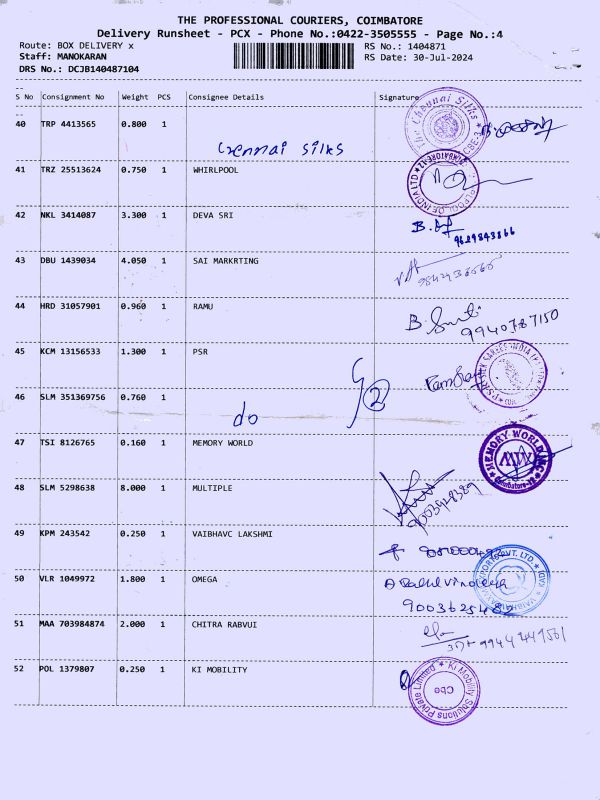 THE PROFESSIONAL COURIERS, COIMBATORE
Delivery Runsheet - PCX - Phone No.:0422-3505555 - Page No.:4
Route: BOX DELIVERY x RS No.: 1404871
Staff: MANOKARAN RS Date: 30-Jul-2024
DRS No.: DCJB140487104
S No Consignment No Weight PCS Consignee Details Signature
40 TRP 4413565 0.800 1
The Chennai Silks CBE-3
Chennai Silks
41 TRZ 25513624 0.750 1 WHIRLPOOL
42 NKL 3414087 3.300 1 DEVA SRI
B.
9629843866
43 DBU 1439034 4.050 1 SAI MARKRTING
44 HRD 31057901 0.960 1 RAMU
B.
9940787150
45 KCM 13156533 1.300 1 PSR
46 SLM 351369756 0.760 1
2
do
47 TSI 8126765 0.160 1 MEMORY WORLD
MEMORY WORLD
MW
48 SLM 5298638 8.000 1 MULTIPLE
49 KPM 243542 0.250 1 VAIBHAVC LAKSHMI
50 VLR 1049972 1.800 1 OMEGA
9003625482
51 MAA 703984874 2.000 1 CHITRA RABVUI
52 POL 1379807 0.250 1 KI MOBILITY
Ki Mobility Solutions Private Limited
Cbe